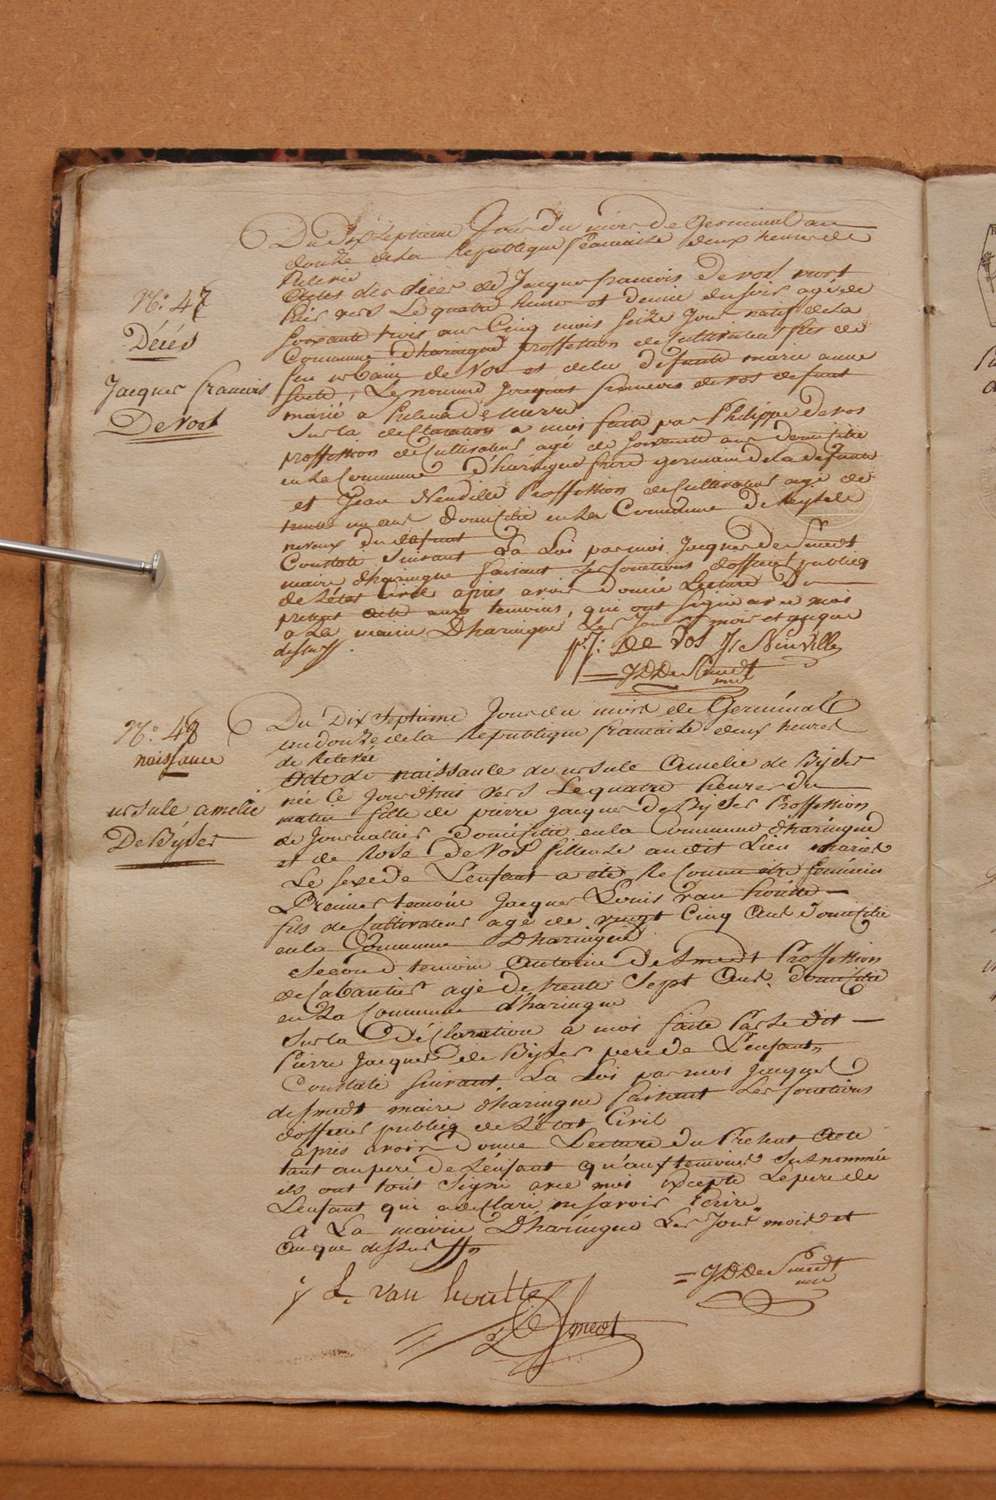 No. 47
Décés
Jacques francois
De vost
Du dix septieme Jour du mois de Germinal an
douze de la Republique francaise deux heures de
Relevée
Acte de décés de Jacques francois de vost mort
hier vers Le quatre heures et demie du soir agé de
soixante trois ans Cinq mois seize Jour natif de la
Commune d'haringue proffession de Cultivateur fils de
feu urbain de Vos et de la défunte marie anne
Le nommé Jacques francois de vos defunt
marié a
sur la declaration a moi faite par Philippe de vos
proffession de Cultivateur agé de soixante ans domicilié
en La Commune d'haringue frere germain de la defunte
et Jean Neuville Proffession de Cultivateur agé de
trente un ans domicilié en La Commune De
neveux du defunt
Constaté Suivant La Loi par moi Jacques de Smedt
maire d'haringue faisant les fonctions d'officier publiq
de L'état Civil apres avoir donné Lecture du
present acte aux temoins, que ont signé avec moi
a La mairie D'haringue Les Jour mois et an que
dessus
p: j: De Vos Js Neuville
= JDDe Smedt
No. 48
naissance
ursule amelie
De Byser
Du Dix septieme Jour du mois de Germinal
an douze de la Republique francaise deux heures
de Relevée
Acte de naissance de ursule Amelie de Byser
née Ce Jourdhui vers Le quatre heures du
matin fille de pierre Jacques De Byser Proffession
de Journallier Domicilié en la Commune d'haringue
et de Rose De Vos filleuse au dit Lieu mariés
Le sexe de L'enfant a été Reconnu etre feminin
Premier temoin Jacques Louis van houtte
fils de Cultivateur agé de vingt Cinq ans Domicilié
en la Commune D'haringue
Second temoin Antoine De Smedt Proffession
de Cabartier agé de trente Sept Ans Domicilié
en La Commune d'haringue
Sur la Déclaration a moi faite Par Le dit
Pierre Jacques de Byser pere de L'enfant
Constaté suivant La Loi par moi Jacques
de Smedt maire d'haringue faisant Les fonctions
d'officier publiq de L'état Civil
apres avoir donné Lecture du Present Acte
tant au pere de L'enfant qu'aux temoins susnommés
ils ont tout signé avec moi Excepté Le pere de
L'enfant qui a declaré ne savoir Ecrire
a La mairie D'haringue Les Jour mois et
an que dessus
j L. van houtte
= JDDe Smedt
A De Smedt